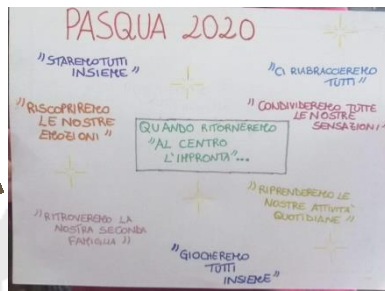 PASQUA 2020
"STAREMO TUTTI
INSIEME"
"CI RIABBRACCEREMO
TUTTI"
"RISCOPRIREMO
LE NOSTRE
EMOZIONI"
"CONDIVIDEREMO TUTTE
LE NOSTRE
SENSAZIONI"
QUANDO RITORNEREMO
"AL CENTRO
L'IMPRONTA"...
"RIPRENDEREMO LE
NOSTRE ATTIVITÀ
QUOTIDIANE"
"RITROVEREMO LA
NOSTRA SECONDA
FAMIGLIA"
"GIOCHEREMO
TUTTI
INSIEME"